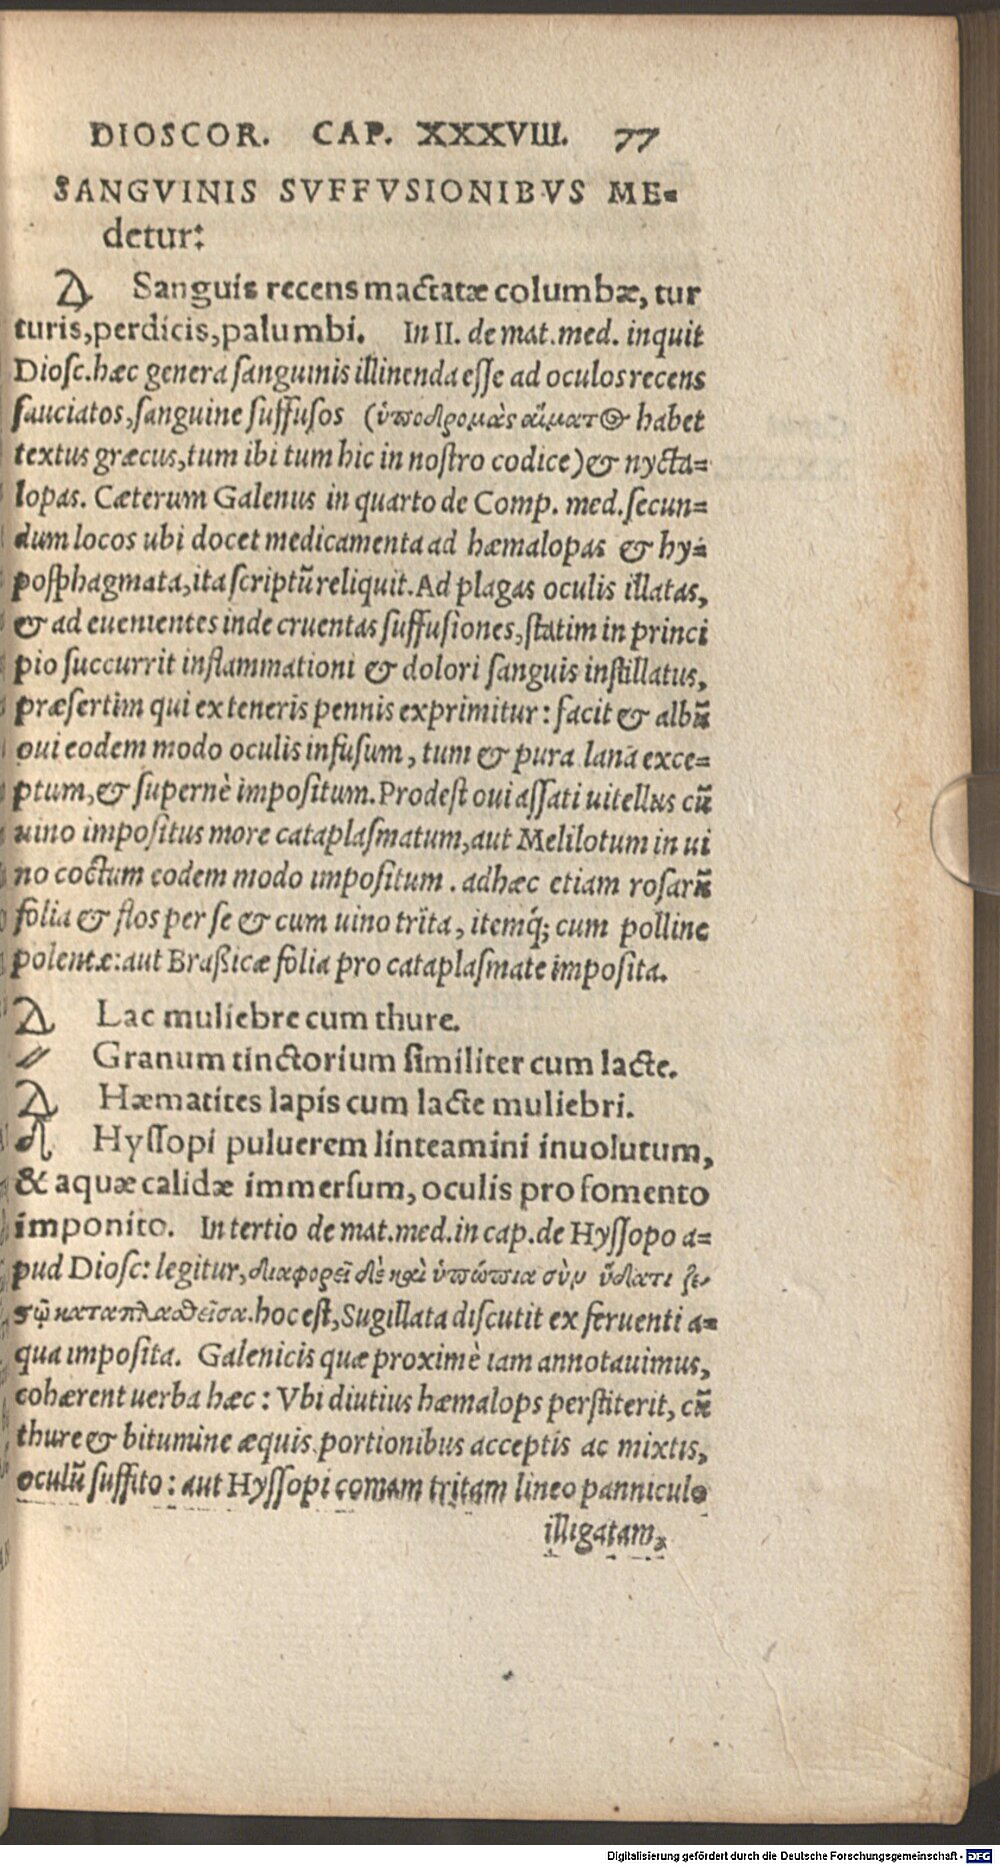 DIOSCOR. CAP. XXXVIII. 77
SANGVINIS SVFFVSIONIBVS ME-
detur:
Δ Sanguis recens mactatæ columbæ, tur
turis, perdicis, palumbi. In II. de mat. med. inquit
Diosc. hæc genera sanguinis illinenda esse ad oculos recens
sauciatos, sanguine suffusos (ὑποδρομὰς αἵματος habet
textus græcus, tum ibi tum hic in nostro codice) & nycta-
lopas. Cæterum Galenus in quarto de Comp. med. secun-
dum locos ubi docet medicamenta ad hæmalopas & hy-
posphagmata, ita scriptū reliquit. Ad plagas oculis illatas,
& ad euenientes inde cruentas suffusiones, statim in princi
pio succurrit inflammationi & dolori sanguis instillatus,
præsertim qui ex teneris pennis exprimitur: facit & albū
oui eodem modo oculis infusum, tum & pura lana exce-
ptum, & supernè impositum. Prodest oui assati uitellus cū
uino impositus more cataplasmatum, aut Melilotum in ui
no coctum eodem modo impositum. adhæc etiam rosarū
folia & flos per se & cum uino trita, itemq́; cum polline
polentæ: aut Braßicæ folia pro cataplasmate imposita.
Δ Lac muliebre cum thure.
〃 Granum tinctorium similiter cum lacte.
Δ Hæmatites lapis cum lacte muliebri.
Hyssopi puluerem linteamini inuolutum,
& aquæ calidæ immersum, oculis pro fomento
imponito. In tertio de mat. med. in cap. de Hyssopo a-
pud Diosc: legitur, διαφορεῖ δὲ καὶ ὑπώπια σὺν ὕδατι ζε-
στῷ καταπλασθεῖσα. hoc est, Sugillata discutit ex feruenti a-
qua imposita. Galenicis quæ proximè iam annotauimus,
cohærent uerba hæc: Vbi diutius hæmalops perstiterit, cū
thure & bitumine æquis portionibus acceptis ac mixtis,
oculū suffito: aut Hyssopi comam tritam lineo panniculo
illigatam,
Digitalisierung gefördert durch die Deutsche Forschungsgemeinschaft - DFG